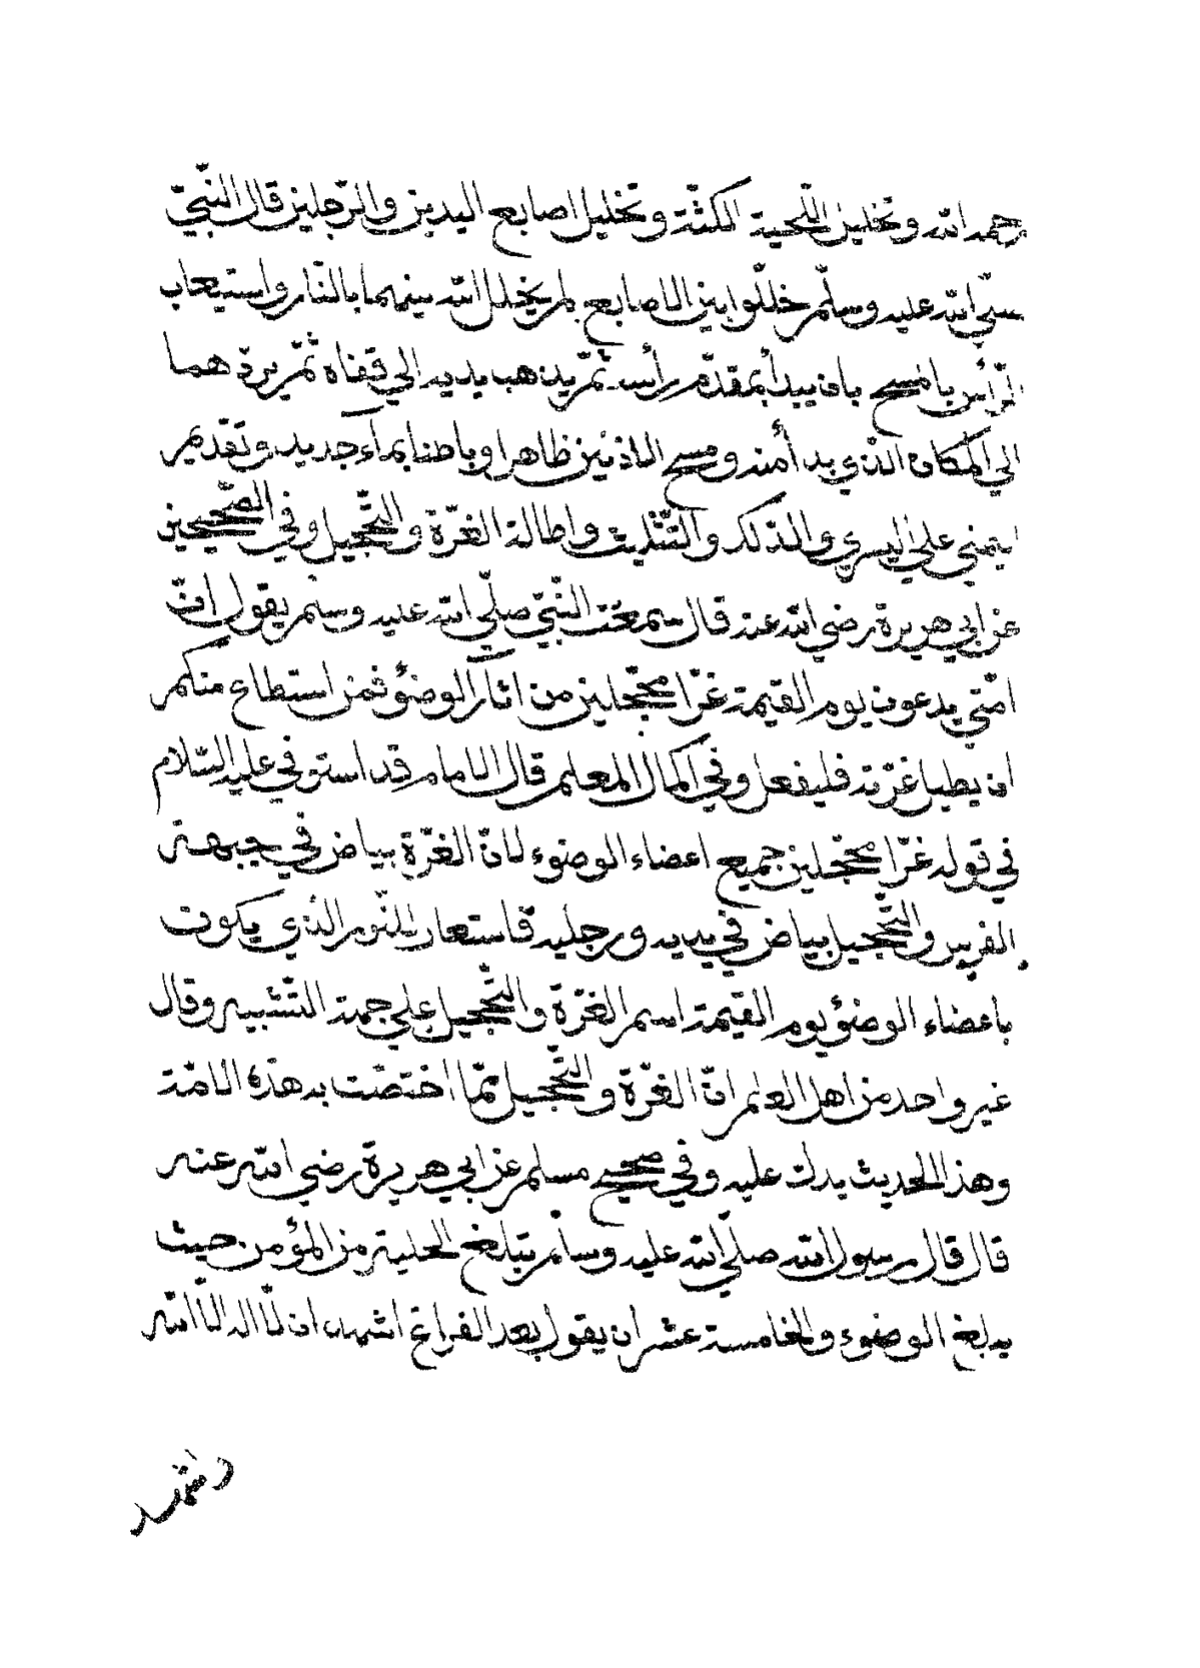 رحمه الله وتخليل اللّحية الكثّة وتخليل اصابع اليدين والرّجلين قال النّبيّ
صلّي الله عليه وسلّم خلّلوا بين الاصابع لم يخلل الله بينهما بالنّار واستيعاب
الرّأس بالمسح بان يبدأ بمقدّم رأسه ثمّ يذهب بيديه الي قفاه ثمّ يردّ هما
الي المكان الّذي بدأ منه ومسح الاذنين ظاهرا وباطنا بماء جديد وتقديم
اليمني علي اليسري والدلك والتّثليث واطالة الغرّة والتّحجيل وفي الصّحيحين
عن ابي هريرة رضي الله عنه قال سمعت النّبيّ صلّي الله عليه وسلم يقول انّ
امّتي يدعون يوم القيمة غرّا محجّلين من اثار الوضؤ فمن استطاع منكم
ان يطيل غرّته فليفعل وفي اكمال المعلم قال الامام قد استوفي عليه السّلام
في قوله غرّا محجّلين جميع اعضاء الوضوء لانّ الغرّة بياض في جبهة
الفرس والتّحجيل بياض في يديه ورجليه فاستعار للنّور الّذي يكون
باعضاء الوضؤ يوم القيمة اسم الغرّة والتّحجيل علي جهة التّشبيه وقال
غير واحد من اهل العلم انّ الغرّة والتّحجيل ممّا اختصّت به هذه الامّة
وهذا الحديث يدل عليه وفي صحيح مسلم عن ابي هريرة رضي الله عنه
قال قال رسول الله صلّي الله عليه وسلّم تبلغ الحلية من المؤمن حيث
يبلغ الوضوء والخامسة عشر ان يقول بعد الفراغ اشهد ان لّا اله الّا الله